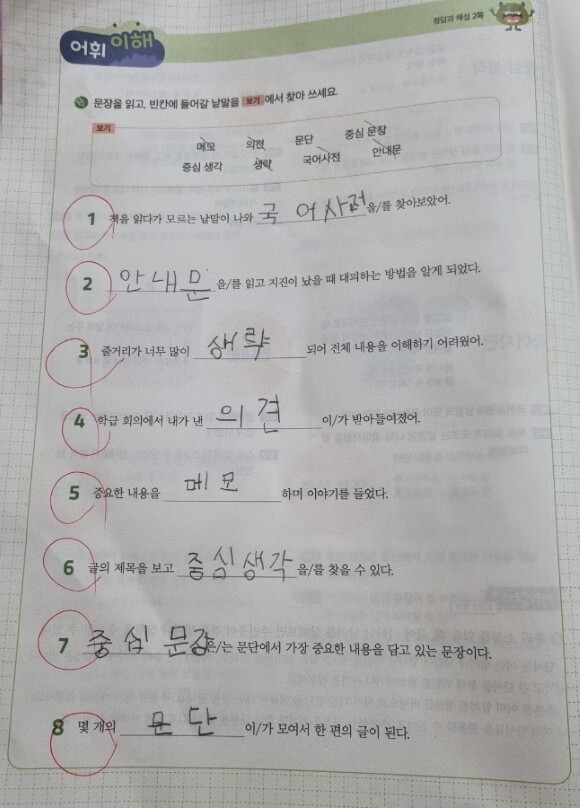 정답과 해설 2쪽
어휘 이해
문장을 읽고, 빈칸에 들어갈 낱말을 보기 에서 찾아 쓰세요.
보기
메모 의견 문단 중심 문장
중심 생각 생략 국어사전 안내문
1 책을 읽다가 모르는 낱말이 나와 국어사전 을/를 찾아보았어.
2 안내문 을/를 읽고 지진이 났을 때 대피하는 방법을 알게 되었다.
3 줄거리가 너무 많이 생략 되어 전체 내용을 이해하기 어려웠어.
4 학급 회의에서 내가 낸 의견 이/가 받아들여졌어.
5 중요한 내용을 메모 하며 이야기를 들었다.
6 글의 제목을 보고 중심생각 을/를 찾을 수 있다.
7 중심 문장 은/는 문단에서 가장 중요한 내용을 담고 있는 문장이다.
8 몇 개의 문단 이/가 모여서 한 편의 글이 된다.